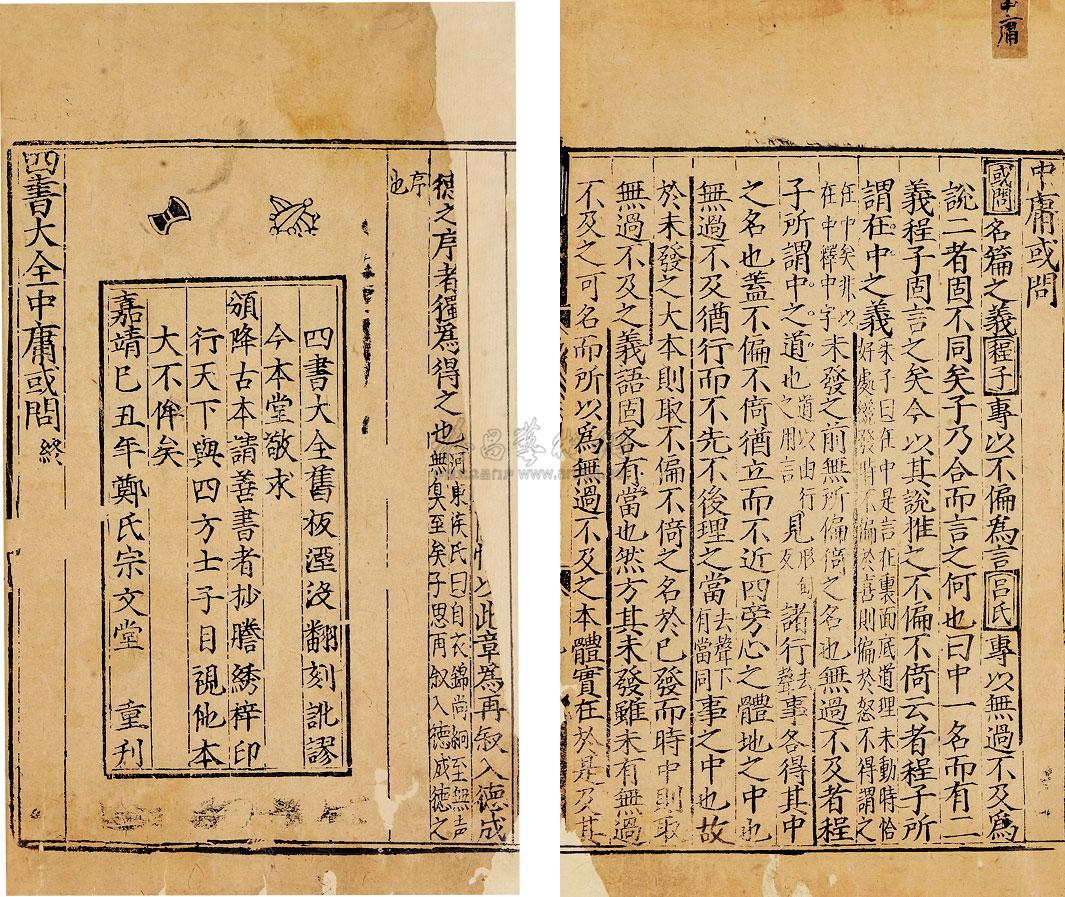 中庸
中庸或問
或問名篇之義程子專以不偏為言呂氏專以無過不及為
說二者固不同矣子乃合而言之何也曰中一名而有二
義程子固言之矣今以其說推之不偏不倚云者程子所
謂在中之義朱子曰在中是言在裏面底道理未動時恰好處纔發時不偏於喜則偏於怒不得謂之
在中矣非以在中釋中字未發之前無所偏倚之名也無過不及者程
子所謂中之道也道以由行之用言見形甸反諸行去聲事各得其中
之名也蓋不偏不倚猶立而不近四旁心之體地之中也
無過不及猶行而不先不後理之當去聲下有當同事之中也故
於未發之大本則取不偏不倚之名於已發而時中則取
無過不及之義語固各有當也然方其未發雖未有無過
不及之可名而所以為無過不及之本體實在於是及其
此章為再叙入德成
德之序者獨為得之也河東侯氏曰自衣錦尚絅至無声無臭至矣子思再叙入德成德之
序也
四書大全舊板湮没翻刻訛謬
今本堂敬求
頒降古本請善書者抄謄綉梓印
行天下與四方士子目視他本
大不侔矣
嘉靖己丑年鄭氏宗文堂 重刊
四書大全中庸或問終